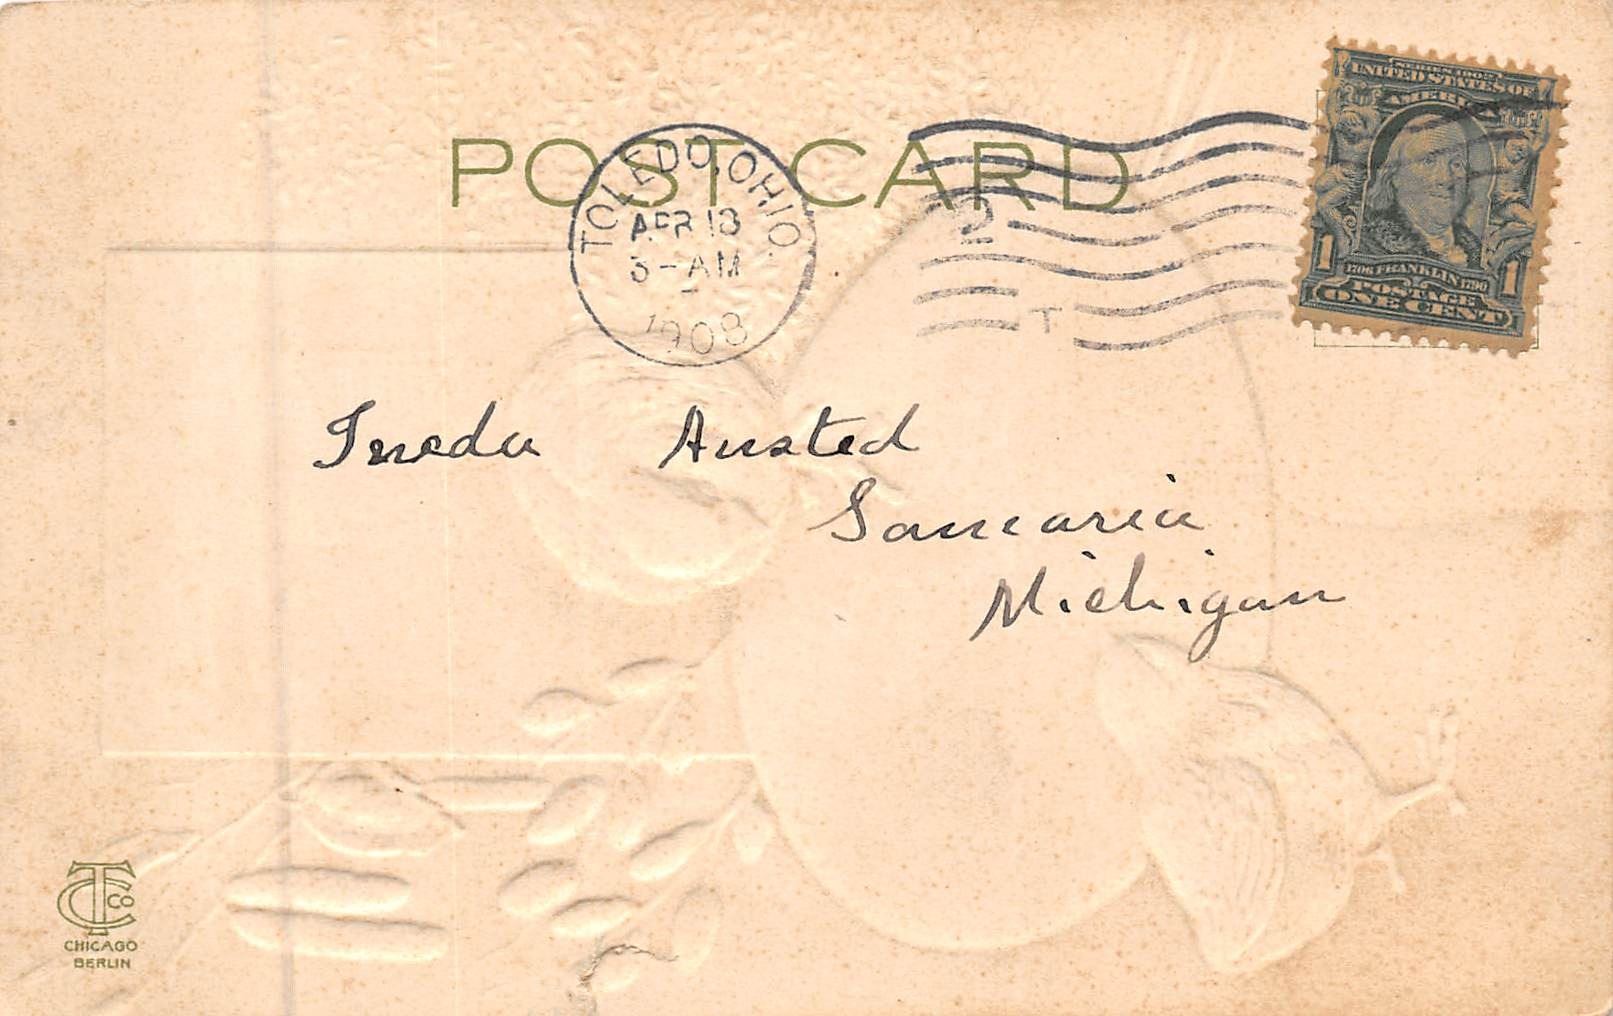 POST CARD
TOLEDO, OHIO.
APR 18
3-AM
1908
2
T
SERIES 1902
UNITED STATES OF
AMERICA
1706 FRANKLIN 1790
1 POSTAGE 1
ONE CENT
Ineda Austed
Samaria
Michigan
TCCo
CHICAGO
BERLIN